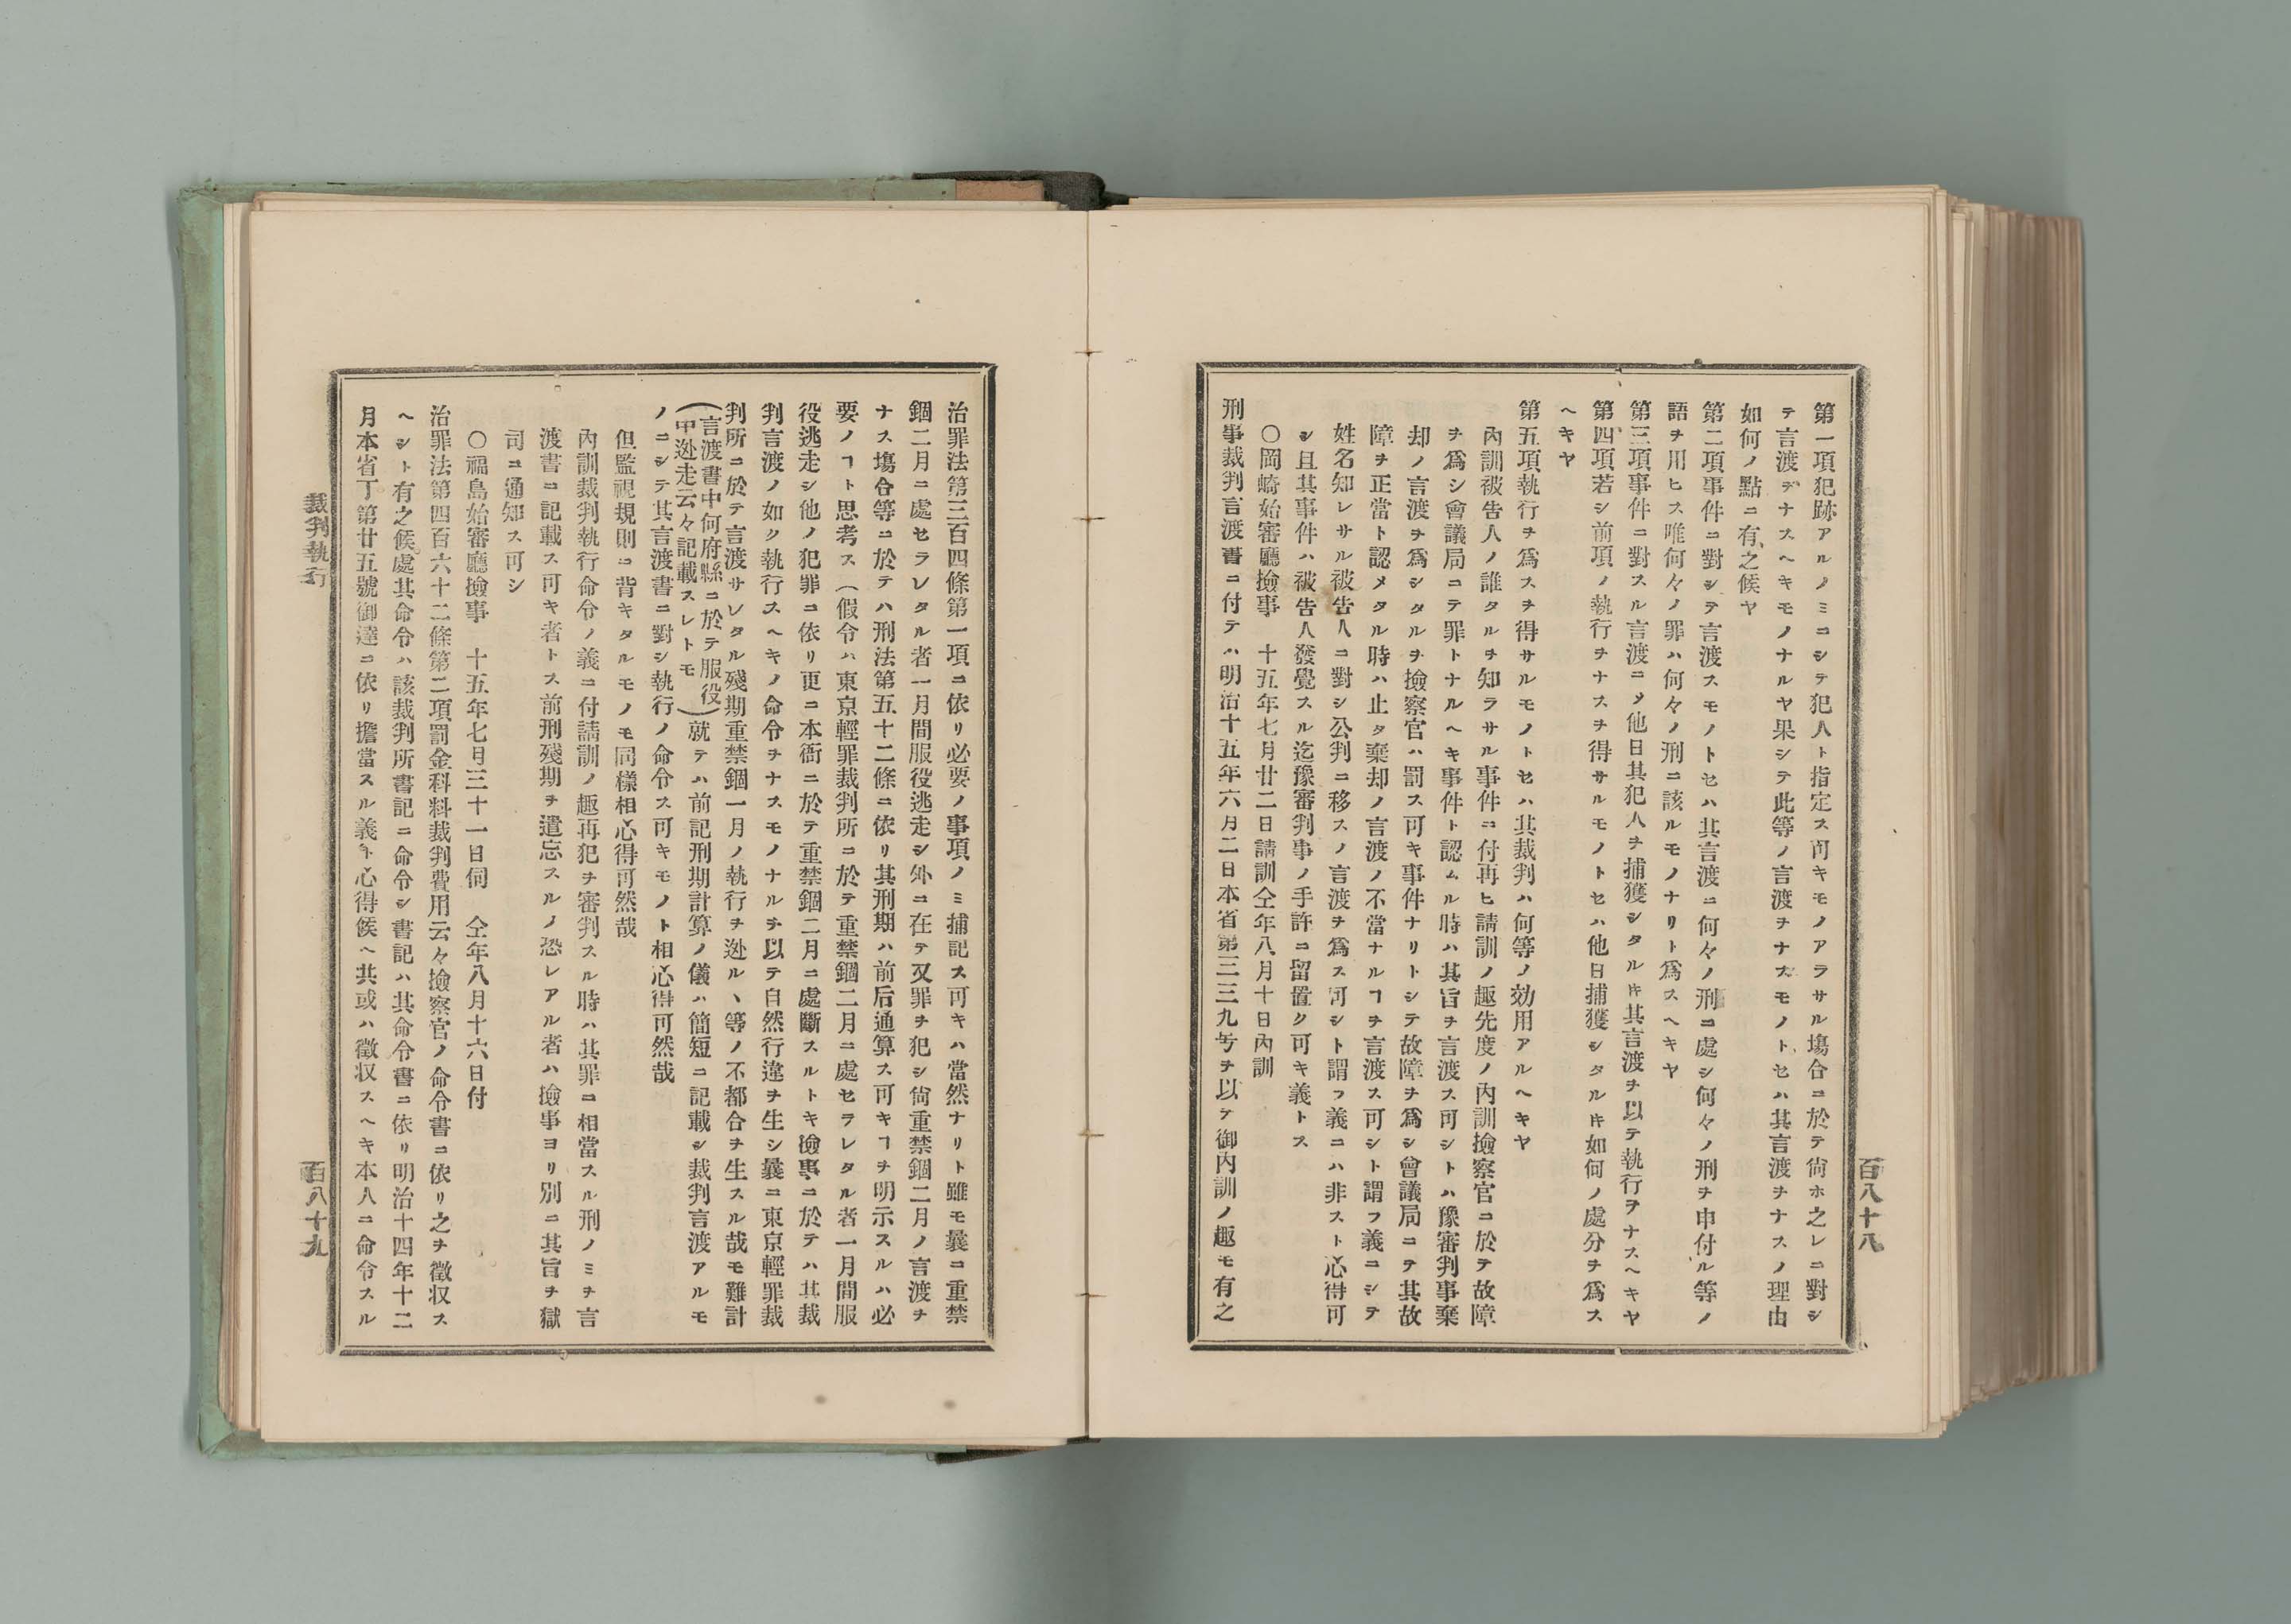 第一項犯跡アルノミニシテ犯人ト指定ス可キモノアラサル塲合ニ於テ尙ホ之レニ對シ
テ言渡ヲナスヘキモノナルヤ果シテ此等ノ言渡ヲナスモノトセハ其言渡ヲナスノ理由
如何ノ點ニ有之候ヤ
第二項事件ニ對シテ言渡スモノトセハ其言渡ニ何々ノ刑ニ處シ何々ノ刑ヲ申付ル等ノ
語ヲ用ヒス唯何々ノ罪ハ何々ノ刑ニ該ルモノナリト爲スヘキヤ
第三項事件ニ對スル言渡ニメ他日其犯人ヲ捕獲シタルキ其言渡ヲ以テ執行ヲナスヘキヤ
第四項若シ前項ノ執行ヲナスヲ得サルモノトセハ他日捕獲シタルキ如何ノ處分ヲ爲ス
ヘキヤ
第五項執行ヲ爲スヲ得サルモノトセハ其裁判ハ何等ノ効用アルヘキヤ
內訓被告人ノ誰タルヲ知ラサル事件ニ付再ヒ請訓ノ趣先度ノ內訓撿察官ニ於テ故障
ヲ爲シ會議局ニテ罪トナルヘキ事件ト認ムル時ハ其旨ヲ言渡ス可シトハ豫審判事棄
却ノ言渡ヲ爲シタルヲ撿察官ハ罰ス可キ事件ナリトシテ故障ヲ爲シ會議局ニテ其故
障ヲ正當ト認メタル時ハ止タ棄却ノ言渡ノ不當ナルヿヲ言渡ス可シト謂フ義ニシテ
姓名知レサル被告人ニ對シ公判ニ移スノ言渡ヲ爲ス可シト謂フ義ニハ非スト心得可
シ且其事件ハ被告人發覺スル迄豫審判事ノ手許ニ留置ク可キ義トス
〇岡崎始審廳撿事 十五年七月廿二日請訓仝年八月十日內訓
刑事裁判言渡書ニ付テハ明治十五年六月二日本省第三三九号ヲ以テ御內訓ノ趣モ有之
百八十八
治罪法第三百四條第一項ニ依リ必要ノ事項ノミ捕記ス可キハ當然ナリト雖モ曩ニ重禁
錮二月ニ處セラレタル者一月間服役逃走シ外ニ在テ又罪ヲ犯シ尙重禁錮二月ノ言渡ヲ
ナス塲合等ニ於テハ刑法第五十二條ニ依リ其刑期ハ前后通算ス可キヿヲ明示スルハ必
要ノヿト思考ス(假令ハ東京輕罪裁判所ニ於テ重禁錮二月ニ處セラレタル者一月間服
役逃走シ他ノ犯罪ニ依リ更ニ本衙ニ於テ重禁錮二月ニ處斷スルトキ撿事ニ於テハ其裁
判言渡ノ如ク執行スヘキノ命令ヲナスモノナルヲ以テ自然行違ヲ生シ曩ニ東京輕罪裁
判所ニ於テ言渡サレタル殘期重禁錮一月ノ執行ヲ迯ルヽ等ノ不都合ヲ生スル哉モ難計
(言渡書中何府縣ニ於テ服役
中迯走云々記載スレトモ)就テハ前記刑期計算ノ儀ハ簡短ニ記載シ裁判言渡アルモ
ノニシテ其言渡書ニ對シ執行ノ命令ス可キモノト相心得可然哉
但監視規則ニ背キタルモノモ同樣相心得可然哉
內訓裁判執行命令ノ義ニ付請訓ノ趣再犯ヲ審判スル時ハ其罪ニ相當スル刑ノミヲ言
渡書ニ記載ス可キ者トス前刑殘期ヲ遺忘スルノ恐レアル者ハ撿事ヨリ別ニ其旨ヲ獄
司ニ通知ス可シ
〇福島始審廳撿事 十五年七月三十一日伺 仝年八月十六日付
治罪法第四百六十二條第二項罰金科料裁判費用云々撿察官ノ命令書ニ依リ之ヲ徵収ス
ヘシト有之候處其命令ハ該裁判所書記ニ命令シ書記ハ其命令書ニ依リ明治十四年十二
月本省丁第廿五號御達ニ依リ擔當スル義ト心得候ヘ共或ハ徵収スヘキ本人ニ命令スル
裁判執行
百八十九